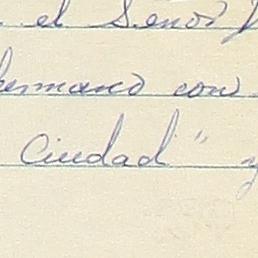 el Señor
hermano con
Ciudad" y